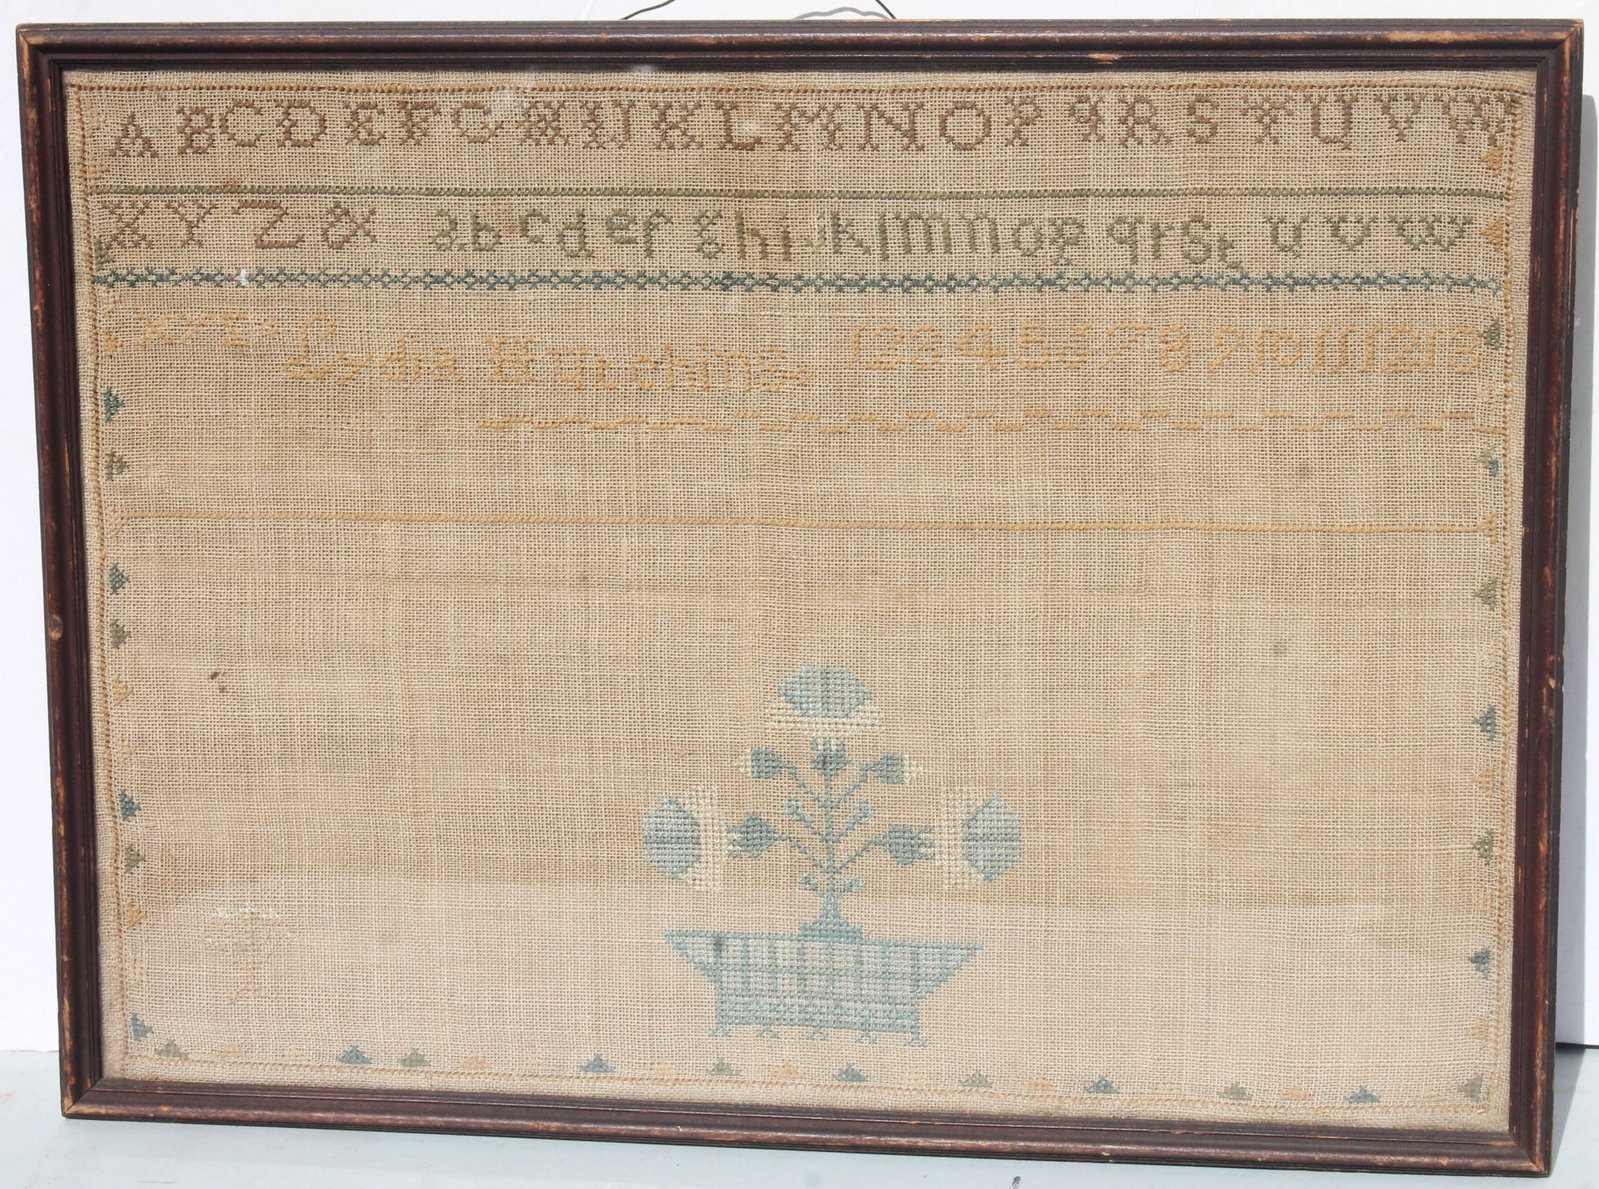 ABCDEFGHIJKLMNOPqRSTUVW
XYZ& abcdefghijklmnopqrst uvw
xyz& Lydia Hutchins 12345678910111213